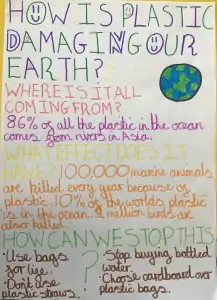 HOW IS PLASTIC
DAMAGING OUR
EARTH?
WHERE IS IT ALL
COMING FROM?
86% of all the plastic in the ocean
comes from rivers in Asia.
WHAT EFFECT DOES IT
HAVE? 100,000 marine animals
are killed every year because of
plastic. 10% of the worlds plastic
is in the ocean. 1 million birds are
also killed.
HOW CAN WE STOP THIS
?
• Use bags
for life.
• Don't use
plastic straws.
• Stop buying bottled
water.
• Choose cardboard over
plastic bags.